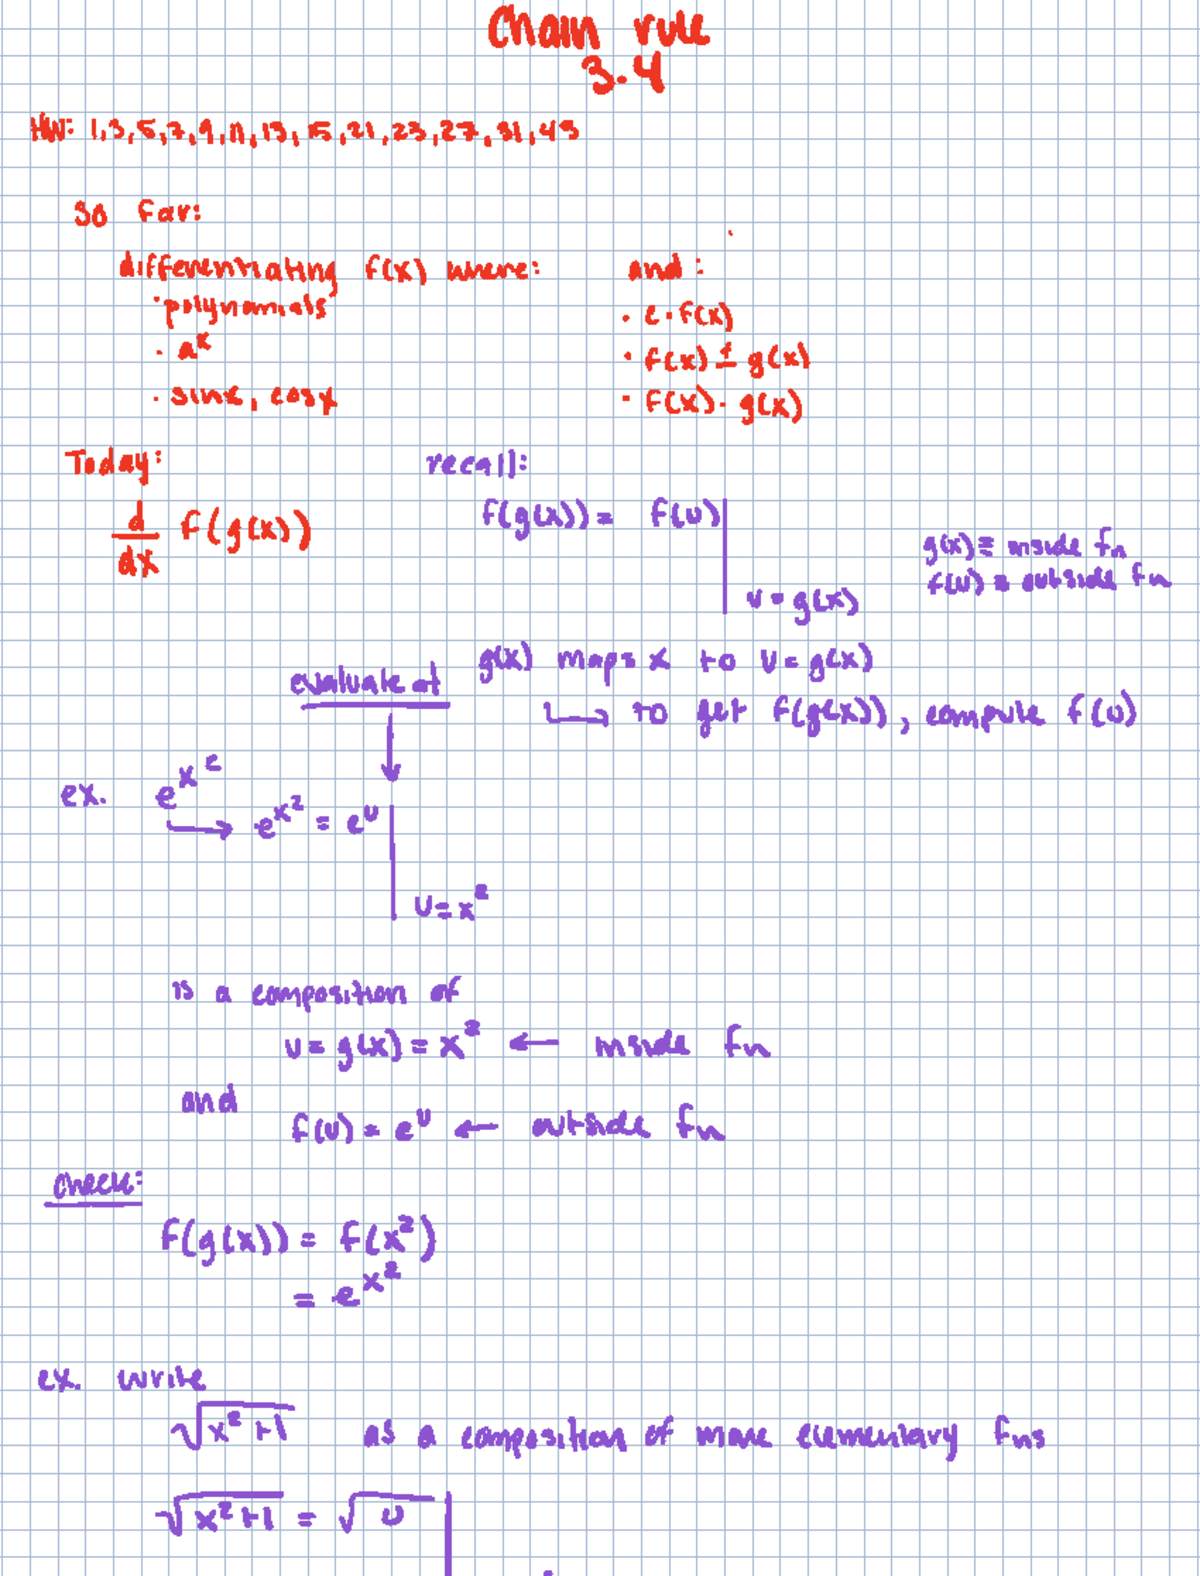 Chain rule
3.4
HW: 1,3,5,7,9,11,13,15,21,23,27,31,45
So far:
differentiating f(x) where:
· polynomials
· aˣ
· sinx, cosx
and:
· c·f(x)
· f(x) ± g(x)
· f(x)· g(x)
Today:
d/dx f(g(x))
recall:
f(g(x)) = f(u)|
u = g(x)
g(x) = inside fn
f(u) = outside fn
g(x) maps x to u = g(x)
↳ to get f(g(x)), compute f(u)
evaluate at
ex. e^x^2
→ e^x^2 = e^u |
u = x²
is a composition of
u = g(x) = x² ← inside fn
and
f(u) = e^u ← outside fn
check:
f(g(x)) = f(x²)
= e^x^2
ex. write
√(x²+1) as a composition of more elementary fns
√(x²+1) = √u |